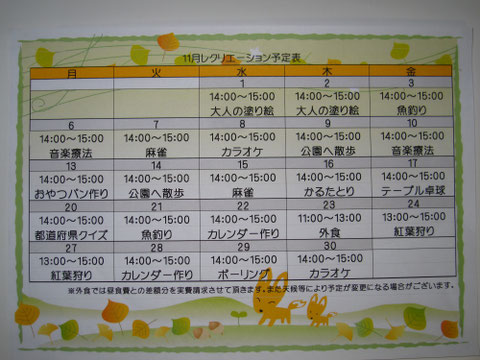 11月レクリエーション予定表
月 火 水 木 金
1 2 3
14:00～15:00 14:00～15:00 14:00～15:00
大人の塗り絵 大人の塗り絵 魚釣り
6 7 8 9 10
14:00～15:00 14:00～15:00 14:00～15:00 14:00～15:00 14:00～15:00
音楽療法 麻雀 カラオケ 公園へ散歩 音楽療法
13 14 15 16 17
14:00～15:00 14:00～15:00 14:00～15:00 14:00～15:00 14:00～15:00
おやつパン作り 公園へ散歩 麻雀 かるたとり テーブル卓球
20 21 22 23 24
14:00～15:00 14:00～15:00 14:00～15:00 11:00～13:00 13:00～15:00
都道府県クイズ 魚釣り カレンダー作り 外食 紅葉狩り
27 28 29 30
13:00～15:00 14:00～15:00 14:00～15:00 14:00～15:00
紅葉狩り カレンダー作り ボーリング カラオケ
※外食では昼食費との差額分を実費請求させて頂きます。また天候等により予定が変更になる場合がございます。